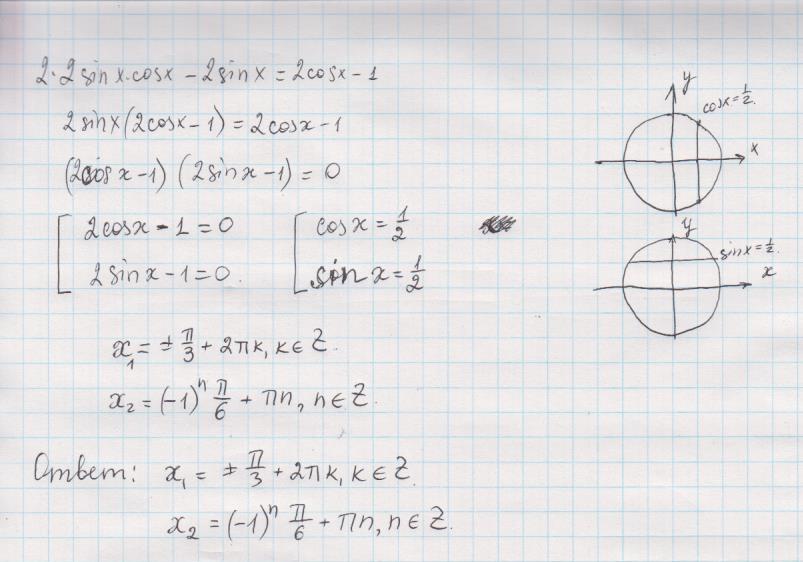 2·2sin x·cosx − 2sin x = 2cosx − 1
2sinx(2cosx − 1) = 2cosx − 1
(2cosx − 1) (2sinx − 1) = 0
2cosx − 1 = 0
2sinx − 1 = 0.
cosx = 1/2
sin x = 1/2
x₁ = ± π/3 + 2πk, k ∈ Z.
x₂ = (−1)ⁿ π/6 + πn, n ∈ Z.
Ответ: x₁ = ± π/3 + 2πk, k ∈ Z.
x₂ = (−1)ⁿ π/6 + πn, n ∈ Z.
y
cosx = 1/2.
x
y
sinx = 1/2.
x